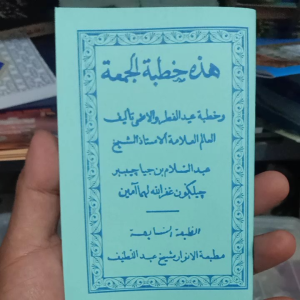 هذه خطبة الجمعة
وخطبة عيد الفطر والاضحى تأليف
العالم العلامة الاستاذ الشيخ
عبد السلام بن جيا جيبير
چيلكون غفر الله لهما آمين
الطبعة السابعة
مطبعة الانوار يشيخ عبد اللطيف